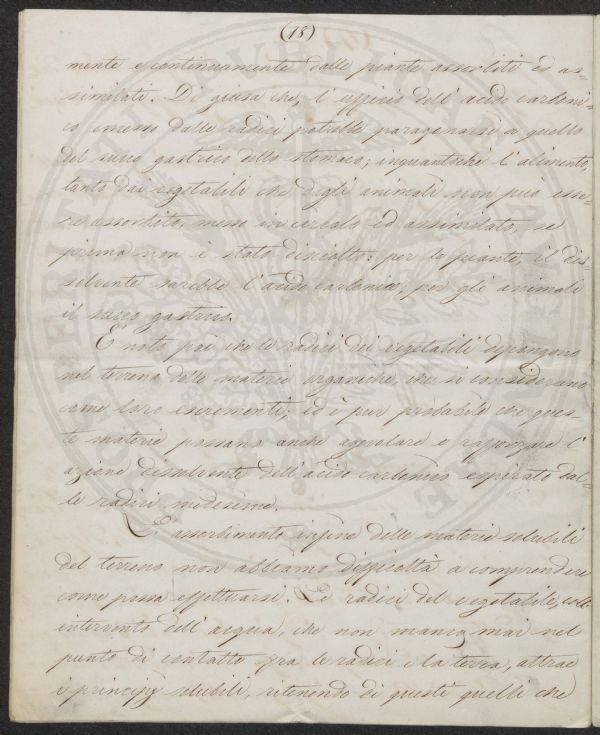 (18)
mente e continuamente dalle piante assorbiti ed as-
similati. Di guisa che, l'ufficio dell'acido carboni-
co emesso dalle radici potrebbe paragonarsi a quello
del succo gastrico dello stomaco; inquantochè l'alimento,
tanto dai vegetabili che dagli animali non può esse-
re assorbito, messo in circolo ed assimilato, se
prima non è stato disciolto: per le piante, il dis-
solvente sarebbe l'acido carbonico; per gli animali
il succo gastrico.
È noto poi che le radici dei vegetabili depongono
nel terreno delle materie organiche, che si considerano
come loro escrementi; ed è pur probabile che ques-
te materie possano anche agevolare e rafforzare l'
azione dissolvente dell'acido carbonico espirato dal-
le radici medesime.
L'assorbimento infine delle materie solubili
del terreno non abbiamo difficoltà a comprendere
come possa effettuarsi. Le radici del vegetabile, coll'
intervento dell'acqua, che non manca mai nel
punto di contatto fra le radici e la terra, attrae
i principj solubili, ritenendo di questi quelli che